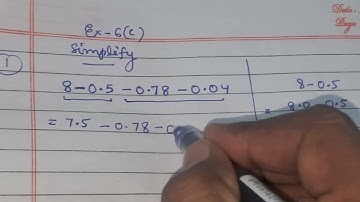 Date:
Page
Ex-6(c)
① Simplify
8-0.5 - 0.78 - 0.04
= 7.5 - 0.78 - 0
8-0.5
= 8.0 - 0.5